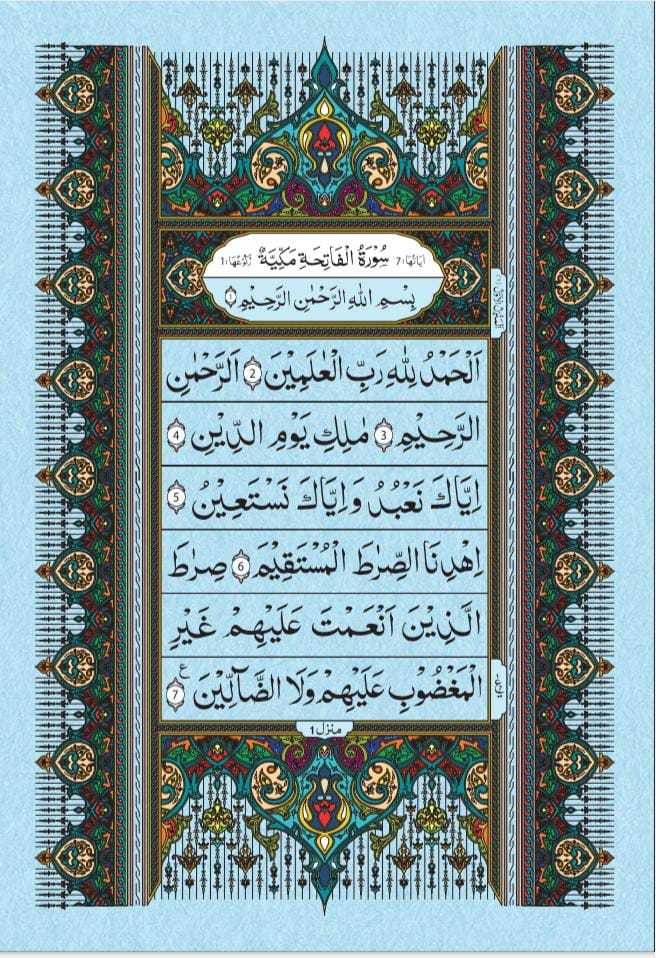 اٰيَاتُهَا:7 سُوْرَةُ الْفَاتِحَةِ مَكِّيَّةٌ رُكُوْعُهَا:1
بِسْمِ اللّٰهِ الرَّحْمٰنِ الرَّحِيْمِ 1
اَلْحَمْدُ لِلّٰهِ رَبِّ الْعٰلَمِيْنَ 2 الرَّحْمٰنِ
الرَّحِيْمِ 3 مٰلِكِ يَوْمِ الدِّيْنِ 4
اِيَّاكَ نَعْبُدُ وَاِيَّاكَ نَسْتَعِيْنُ 5
اِهْدِنَا الصِّرٰطَ الْمُسْتَقِيْمَ 6 صِرٰطَ
الَّذِيْنَ اَنْعَمْتَ عَلَيْهِمْ غَيْرِ
الْمَغْضُوْبِ عَلَيْهِمْ وَلَا الضَّآلِّيْنَ ع 7
منزل 1